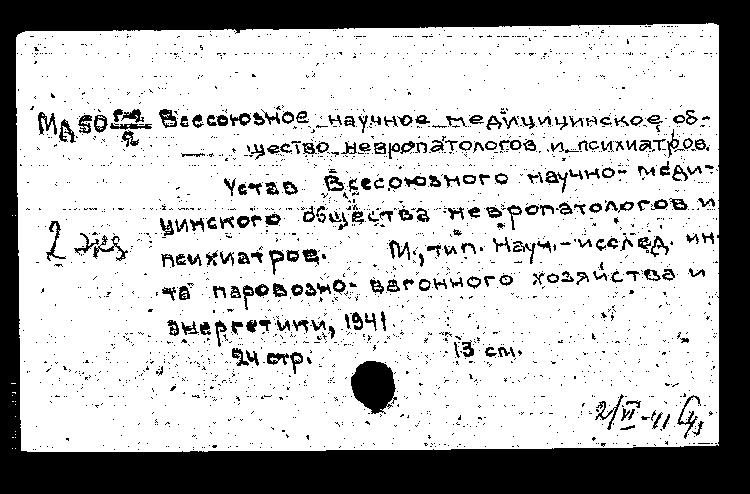 Всесоюзное научное медицицинское об-
щество невропатологов и психиатров.
Устав Всесоюзного научно-меди-
цинского общества невропатологов и
психиатров. М., тип. Науч.-исслед. ин-
та паровозно-вагонного хозяйства и
энергетики, 1941
24 стр. 13 см.
2 экз
2/VI-41